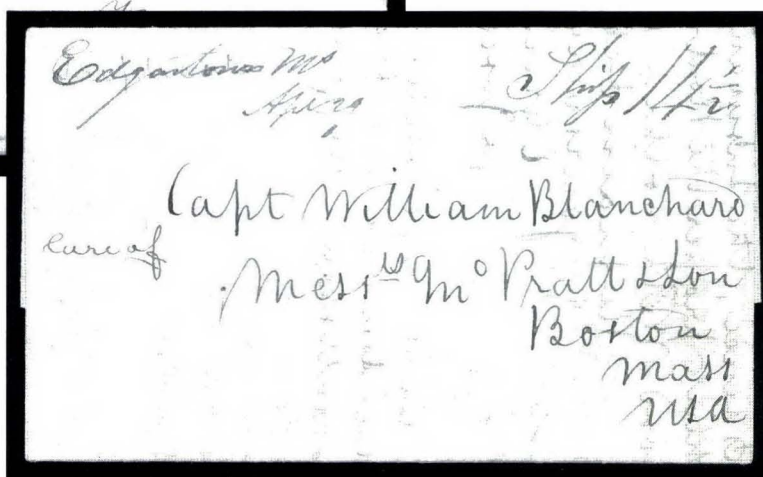 Edgartown Ms
Ship 14½
Capt William Blanchard
Care of
Messrs Pratt & Son
Boston
Mass
USA